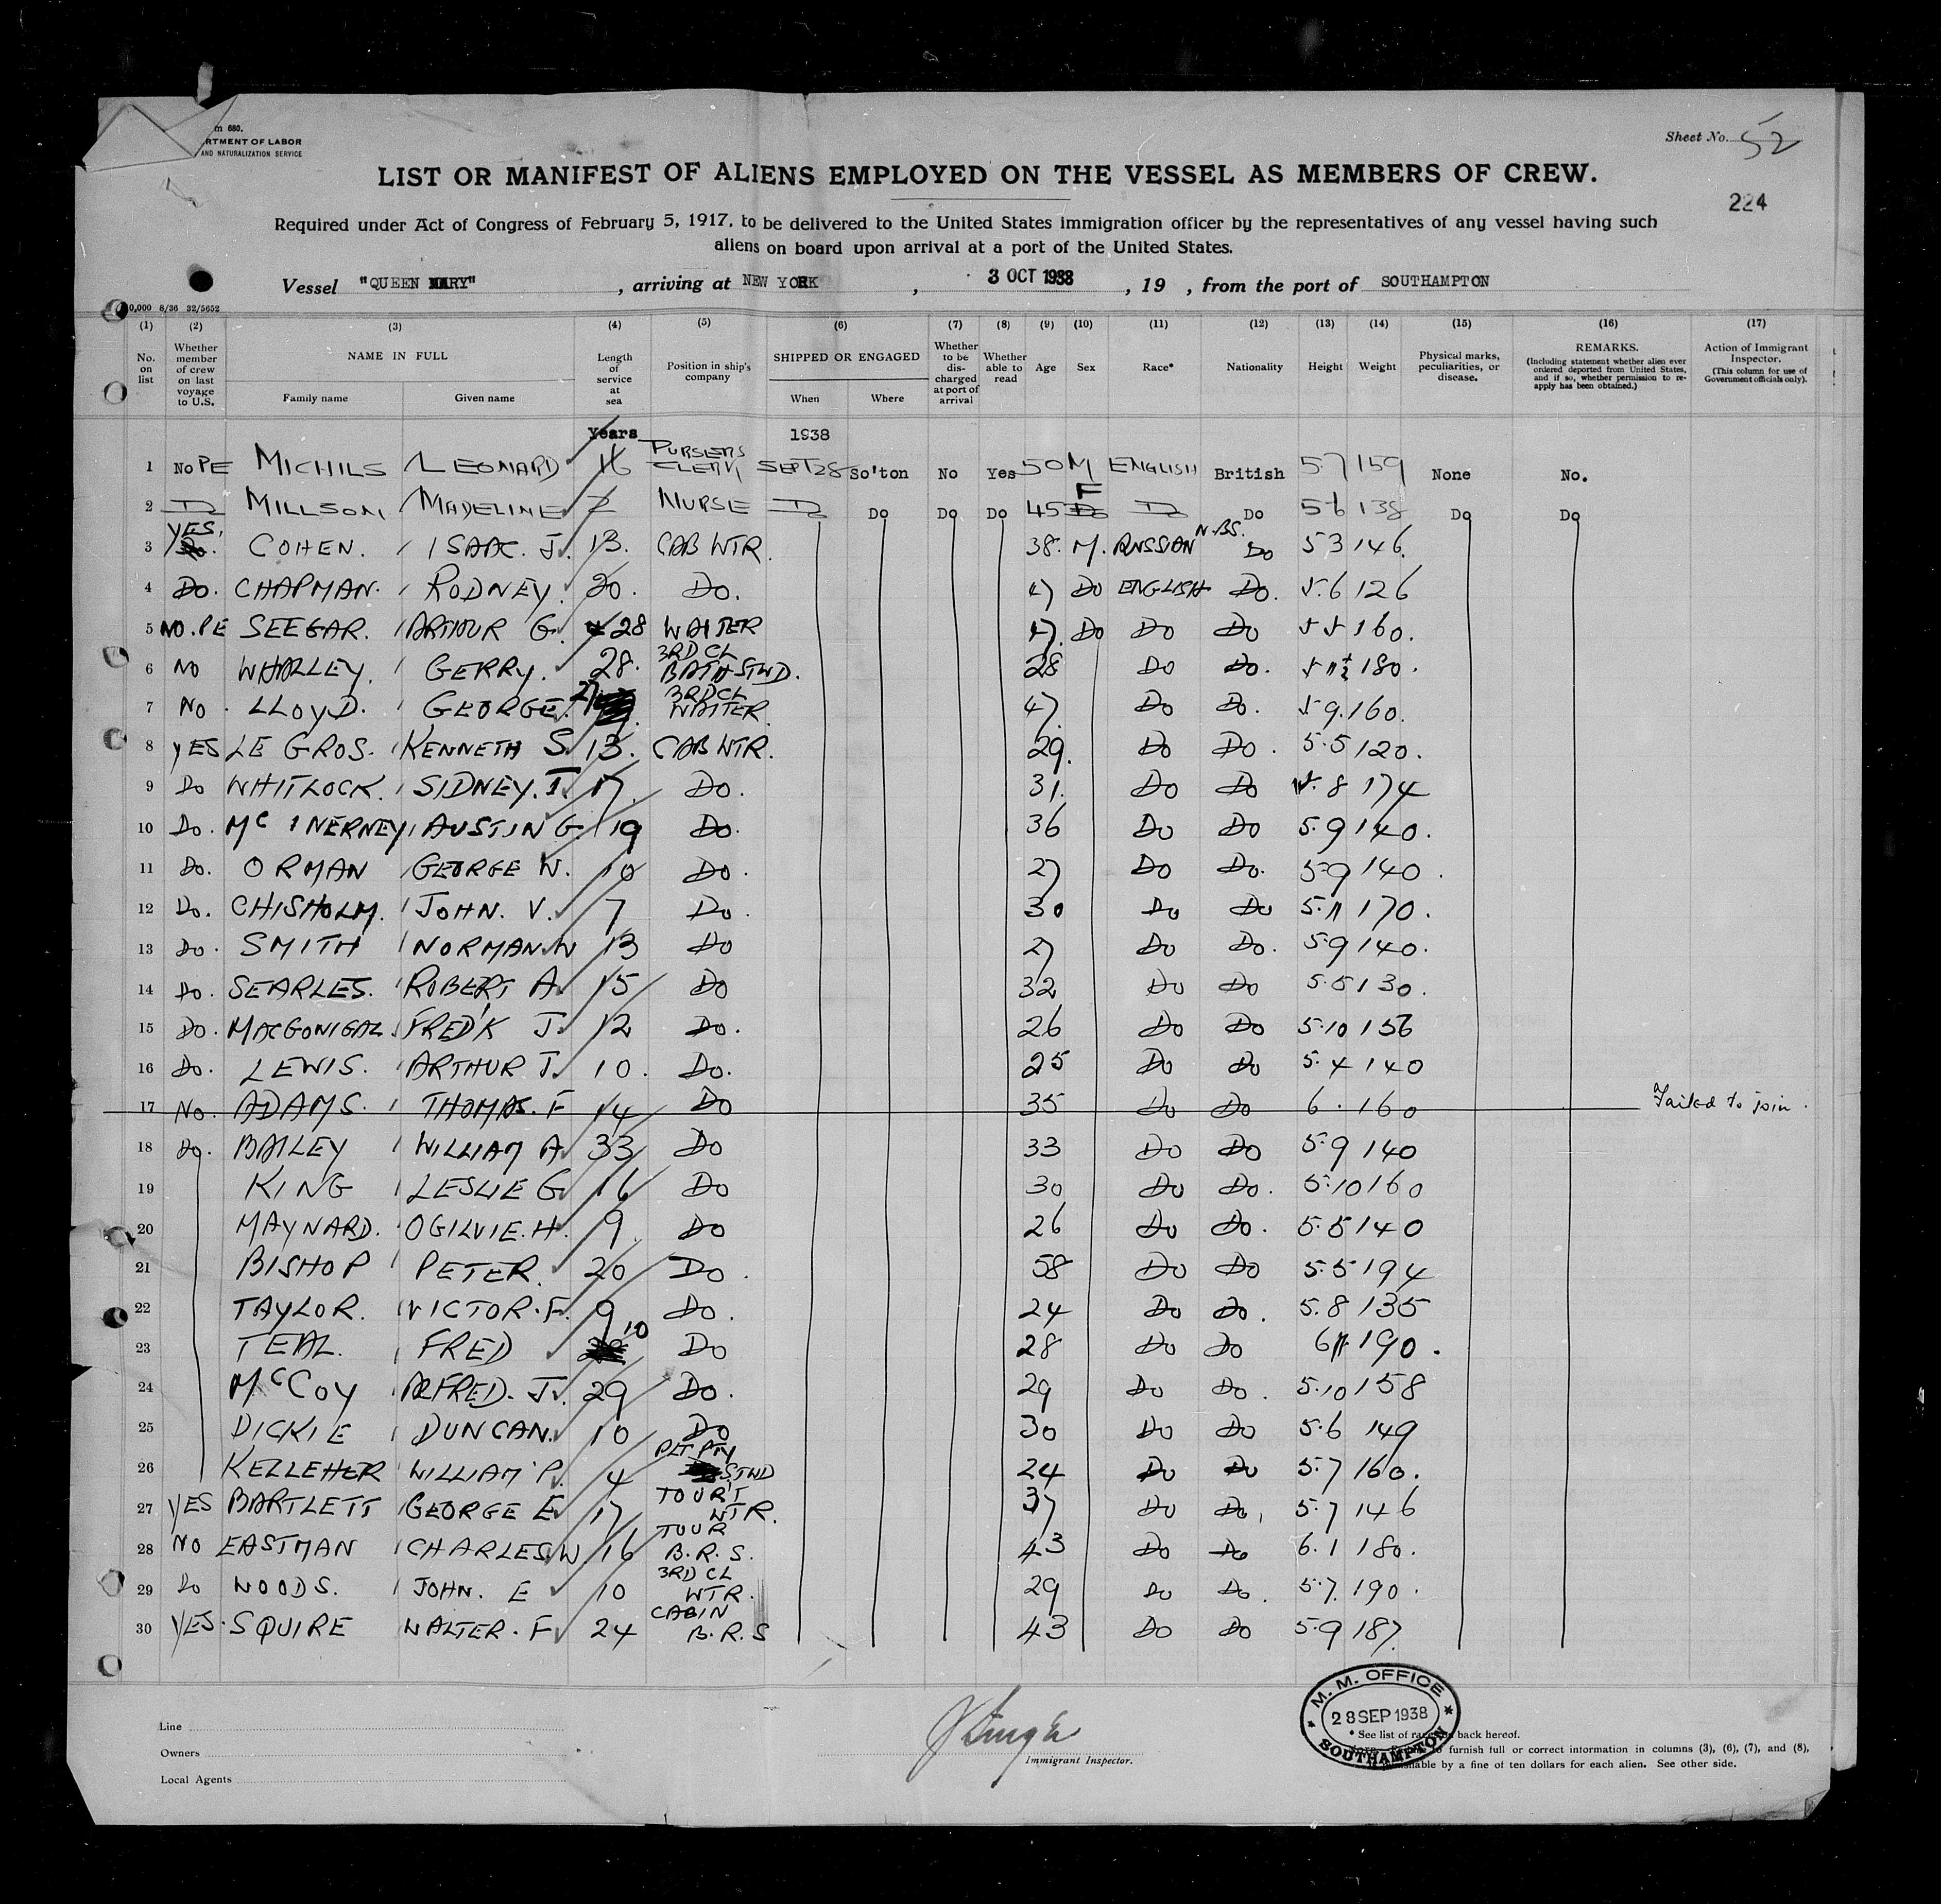 m 680.
RTMENT OF LABOR
AND NATURALIZATION SERVICE
Sheet No. 52
LIST OR MANIFEST OF ALIENS EMPLOYED ON THE VESSEL AS MEMBERS OF CREW.
224
Required under Act of Congress of February 5, 1917, to be delivered to the United States immigration officer by the representatives of any vessel having such
aliens on board upon arrival at a port of the United States.
Vessel "QUEEN MARY" , arriving at NEW YORK , 3 OCT 1938 , 19 , from the port of SOUTHAMPTON
0,000 8/36 32/5652
(1) (2) (3) (4) (5) (6) (7) (8) (9) (10) (11) (12) (13) (14) (15) (16) (17)
No. on list Whether member of crew on last voyage to U.S. NAME IN FULL Family name Given name Length of service at sea Position in ship's company SHIPPED OR ENGAGED When Where Whether to be discharged at port of arrival Whether able to read Age Sex Race* Nationality Height Weight Physical marks, peculiarities, or disease. REMARKS. (Including statement whether alien ever ordered deported from United States, and if so, whether permission to reapply has been obtained.) Action of Immigrant Inspector. (This column for use of Government officials only).
Years 1938
1 No PE MICHILS LEONARD 16 PURSERS CLERK SEPT 28 So'ton No Yes 50 M ENGLISH British 5.7 159 None No.
2 Do MILLSOM MADELINE 7 NURSE Do Do Do Do 45 F Do Do 5 6 138 Do Do
3 YES, COHEN. ISAAC. J. 13. CAB WTR. 38. M. RUSSIAN N.BS. Do 5 3 146.
4 Do. CHAPMAN. RODNEY. 20. Do. 47 Do ENGLISH Do. 5.6 126
5 NO.PE SEEGAR. ARTHUR G. 28 WAITER 47. Do Do Do 5 5 160.
6 NO WHALLEY. GERRY. 28. 3RD CL BATH STWD. 28 Do Do. 5 11½ 180.
7 NO. LLOYD. GEORGE. 27 3RD CL WAITER. 47. Do Do. 5 9. 160.
8 YES LE GROS. KENNETH S. 13. CAB WTR. 29. Do Do. 5.5 120.
9 Do WHITLOCK. SIDNEY. T. 17. Do. 31. Do Do 5. 8 174
10 Do. Mc INERNEY AUSTIN G 19 Do. 36 Do Do 5.9 140.
11 Do. ORMAN GEORGE W. 10 Do. 27 Do Do. 5.9 140.
12 Do. CHISHOLM. JOHN. V. 7 Do. 30 Do Do 5.11 170.
13 Do. SMITH NORMAN. W 13 Do 27 Do Do. 5.9 140.
14 Do. SEARLES. ROBERT A. 15 Do 32 Do Do 5.5 130.
15 Do. MACGONIGAL FRED'K J. 12 Do. 26 Do Do 5.10 156
16 Do. LEWIS. ARTHUR J. 10. Do. 25 Do Do 5.4 140
17 No. ADAMS. THOMAS. F 14 Do 35 Do Do 6. 160 Failed to join.
18 Do. BAILEY WILLIAM A 33 Do 33 Do Do 5.9 140
19 KING LESLIE G 16 Do 30 Do Do. 5.10 160
20 MAYNARD. OGILVIE. H. 9 Do 26 Do Do. 5.5 140
21 BISHOP PETER. 20 Do. 58 Do Do 5.5 194
22 TAYLOR. VICTOR. F. 9 Do. 24 Do Do. 5.8 135
23 TEAL. FRED 10 Do 28 Do Do 6 190.
24 McCOY ALFRED. J. 29 Do. 29 Do Do. 5.10 158
25 DICKIE DUNCAN. 10 Do 30 Do Do 5.6 149
26 KELLEHER WILLIAM P. 4 PLT PTY STWD 24 Do Do 5.7 160.
27 YES BARTLETT GEORGE E 17 TOUR'T WTR. 37 Do Do, 5.7 146
28 NO EASTMAN CHARLES. W 16 TOUR B.R.S. 43 Do Do 6.1 180.
29 Do WOODS. JOHN. E 10 3RD CL WTR. 29 Do Do. 5.7. 190.
30 YES. SQUIRE WALTER. F 24 CABIN B.R.S 43 Do Do 5.9 187.
Line
Owners
Local Agents
Immigrant Inspector.
M. M. OFFICE
28 SEP 1938
SOUTHAMPTON
* See list of races on back hereof.
furnish full or correct information in columns (3), (6), (7), and (8),
by a fine of ten dollars for each alien. See other side.